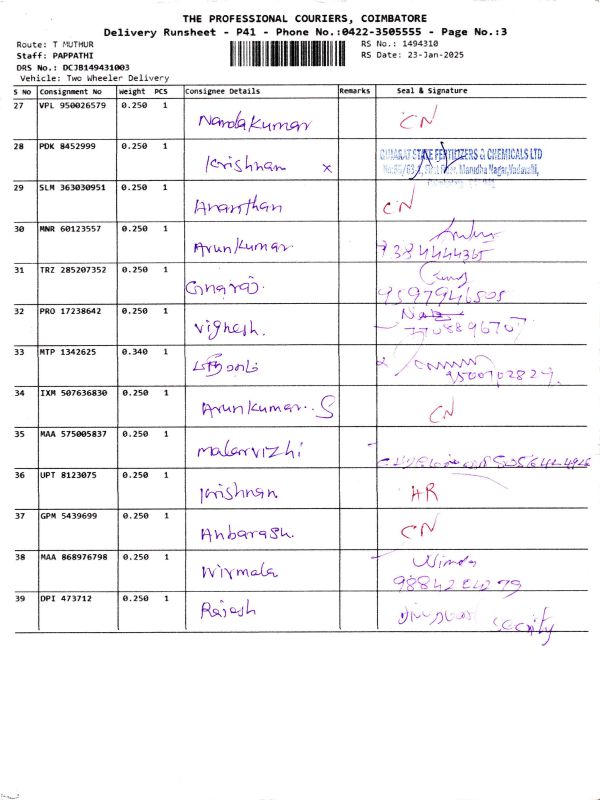 THE PROFESSIONAL COURIERS, COIMBATORE
Delivery Runsheet - P41 - Phone No.:0422-3505555 - Page No.:3
Route: T MUTHUR RS No.: 1494310
Staff: PAPPATHI RS Date: 23-Jan-2025
DRS No.: DCJB149431003
Vehicle: Two Wheeler Delivery
S No Consignment No Weight PCS Consignee Details Remarks Seal & Signature
27 VPL 950026579 0.250 1 Nandakumar CN
28 PDK 8452999 0.250 1 Krishnan x GUJARAT STATE FERTILIZERS & CHEMICALS LTD
Marudha Nagar, Vadavalli,
29 SLM 363030951 0.250 1 Ananthan CN
30 MNR 60123557 0.250 1 Arunkumar
9384444365
31 TRZ 285207352 0.250 1
9597946505
32 PRO 17238642 0.250 1 Vighesh.
7708896707
33 MTP 1342625 0.340 1
34 IXM 507636830 0.250 1 Arunkumar. S CN
35 MAA 575005837 0.250 1 Malarvizhi
36 UPT 8123075 0.250 1 Krishnan HR
37 GPM 5439699 0.250 1 Anbarash. CN
38 MAA 868976798 0.250 1 Nirmala
39 DPI 473712 0.250 1 Rajesh